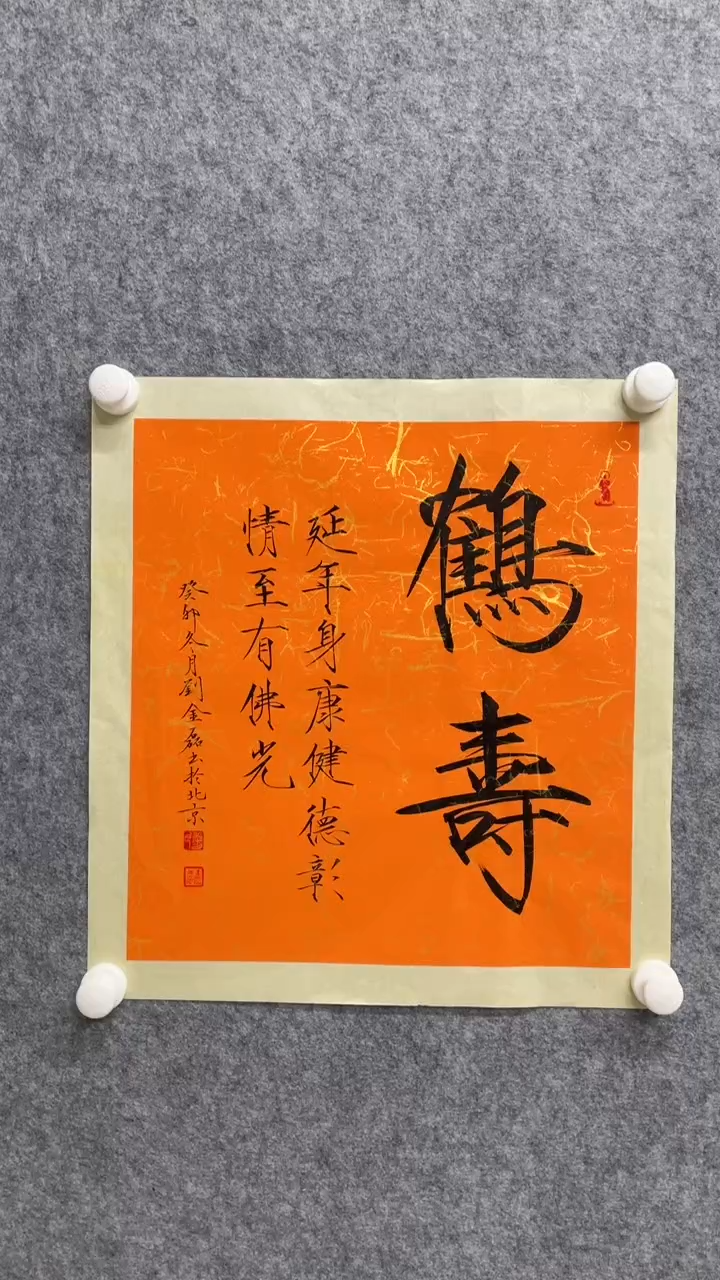 鶴壽
延年身康健德彰
情至有佛光
癸卯冬月劉金磊书於北京